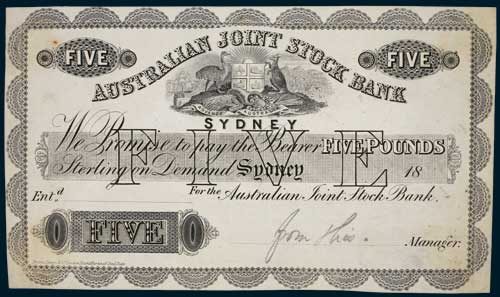 FIVE FIVE
AUSTRALIAN JOINT STOCK BANK
SYDNEY
We Promise to pay the Bearer FIVE POUNDS
FIVE
Sterling on Demand Sydney 18
Ent.d For the Australian Joint Stock Bank.
FIVE from this. Manager.